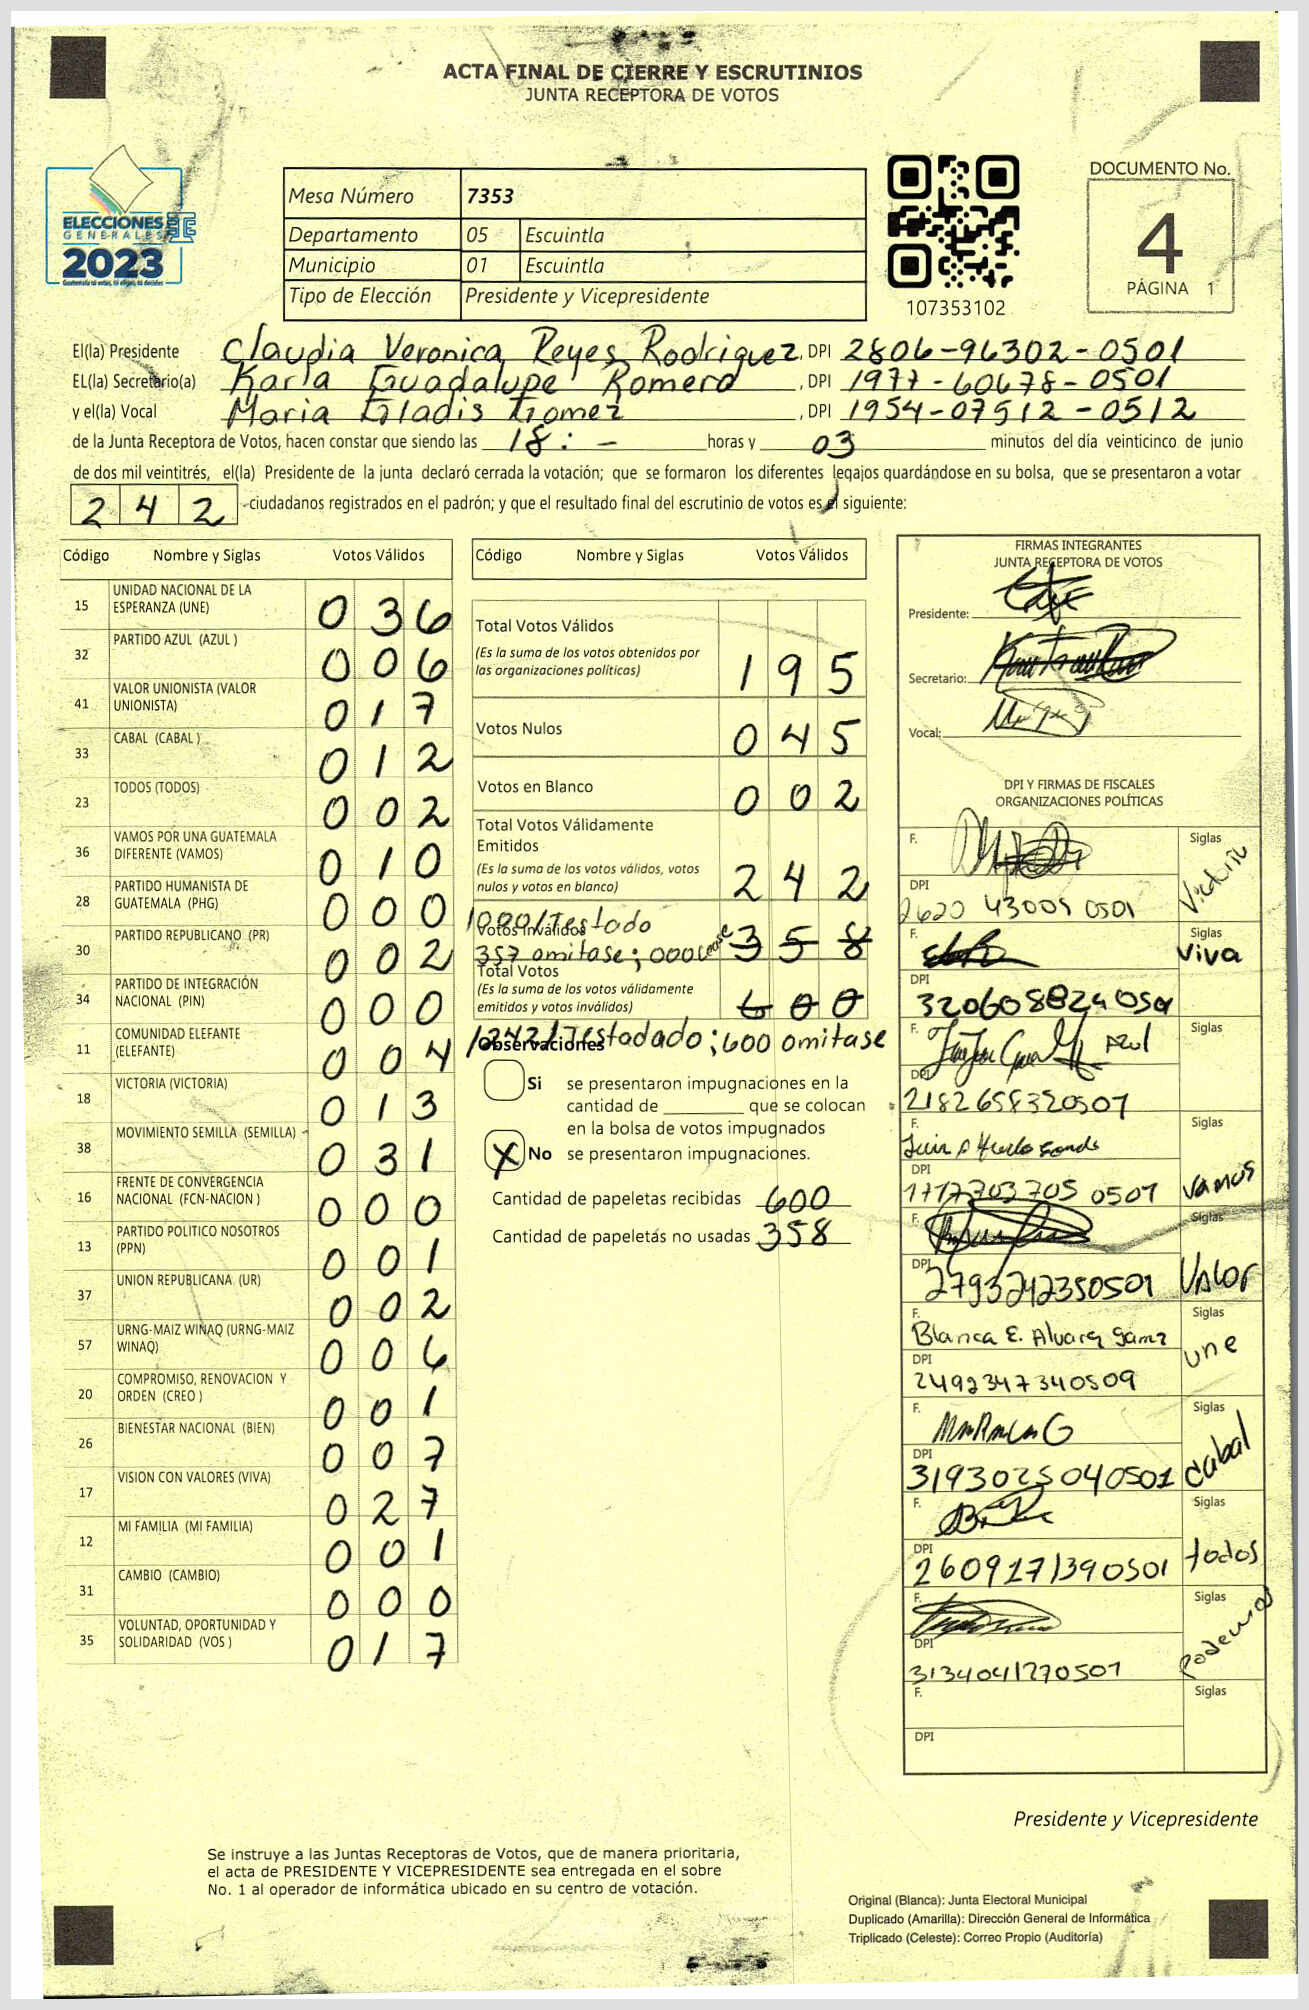 ACTA FINAL DE CIERRE Y ESCRUTINIOS
JUNTA RECEPTORA DE VOTOS
ELECCIONES
GENERALES
2023
Guatemala tú votas, tú eliges, tú decides
Mesa Número 7353
Departamento 05 Escuintla
Municipio 01 Escuintla
Tipo de Elección Presidente y Vicepresidente
107353102
DOCUMENTO No.
4
PÁGINA 1
El(la) Presidente Claudia Veronica Reyes Rodriguez, DPI 2806-96302-0501
EL(la) Secretario(a) Karla Guadalupe Romero, DPI 1977-60678-0501
y el(la) Vocal Maria Gladis Gomez, DPI 1954-07512-0512
de la Junta Receptora de Votos, hacen constar que siendo las 18: - horas y 03 minutos del día veinticinco de junio
de dos mil veintitrés, el(la) Presidente de la junta declaró cerrada la votación; que se formaron los diferentes legajos quardándose en su bolsa, que se presentaron a votar
242 ciudadanos registrados en el padrón; y que el resultado final del escrutinio de votos es el siguiente:
Código Nombre y Siglas Votos Válidos
15 UNIDAD NACIONAL DE LA ESPERANZA (UNE) 036
32 PARTIDO AZUL (AZUL ) 006
41 VALOR UNIONISTA (VALOR UNIONISTA) 017
33 CABAL (CABAL ) 012
23 TODOS (TODOS) 002
36 VAMOS POR UNA GUATEMALA DIFERENTE (VAMOS) 010
28 PARTIDO HUMANISTA DE GUATEMALA (PHG) 000
30 PARTIDO REPUBLICANO (PR) 002
34 PARTIDO DE INTEGRACIÓN NACIONAL (PIN) 000
11 COMUNIDAD ELEFANTE (ELEFANTE) 004
18 VICTORIA (VICTORIA) 013
38 MOVIMIENTO SEMILLA (SEMILLA) 031
16 FRENTE DE CONVERGENCIA NACIONAL (FCN-NACION ) 000
13 PARTIDO POLITICO NOSOTROS (PPN) 001
37 UNION REPUBLICANA (UR) 002
57 URNG-MAIZ WINAQ (URNG-MAIZ WINAQ) 006
20 COMPROMISO, RENOVACION Y ORDEN (CREO ) 001
26 BIENESTAR NACIONAL (BIEN) 007
17 VISION CON VALORES (VIVA) 027
12 MI FAMILIA (MI FAMILIA) 001
31 CAMBIO (CAMBIO) 000
35 VOLUNTAD, OPORTUNIDAD Y SOLIDARIDAD (VOS ) 017
Código Nombre y Siglas Votos Válidos
Total Votos Válidos
(Es la suma de los votos obtenidos por
las organizaciones políticas) 195
Votos Nulos 045
Votos en Blanco 002
Total Votos Válidamente
Emitidos
(Es la suma de los votos válidos, votos
nulos y votos en blanco) 242
/000/Testado
Votos Inválidos 358
357 omitase; 000
Total Votos
(Es la suma de los votos válidamente
emitidos y votos inválidos) 600
/242/Testadado; 600 omitase
Observaciones
Si se presentaron impugnaciones en la
cantidad de ________ que se colocan
en la bolsa de votos impugnados
X No se presentaron impugnaciones.
Cantidad de papeletas recibidas 600
Cantidad de papeletas no usadas 358
FIRMAS INTEGRANTES
JUNTA RECEPTORA DE VOTOS
Presidente:
Secretario:
Vocal:
DPI Y FIRMAS DE FISCALES
ORGANIZACIONES POLÍTICAS
F. Siglas
DPI
2620 43009 0501
F. Siglas
Viva
DPI
3206088240501
F. Siglas
Azul
DPI
2182658320507
F. Siglas
DPI
1717703705 0501 Vamos
F. Siglas
DPI
2793242350501 VALOR
F. Siglas
Blanca E. Alvarez Gamz
une
DPI
2492347340509
F. Siglas
DPI
3193025040501 cabal
F. Siglas
DPI
2609171390501 todos
F. Siglas
podemos
DPI
3134041270501
F. Siglas
DPI
Presidente y Vicepresidente
Se instruye a las Juntas Receptoras de Votos, que de manera prioritaria,
el acta de PRESIDENTE Y VICEPRESIDENTE sea entregada en el sobre
No. 1 al operador de informática ubicado en su centro de votación.
Original (Blanca): Junta Electoral Municipal
Duplicado (Amarilla): Dirección General de Informática
Triplicado (Celeste): Correo Propio (Auditoría)